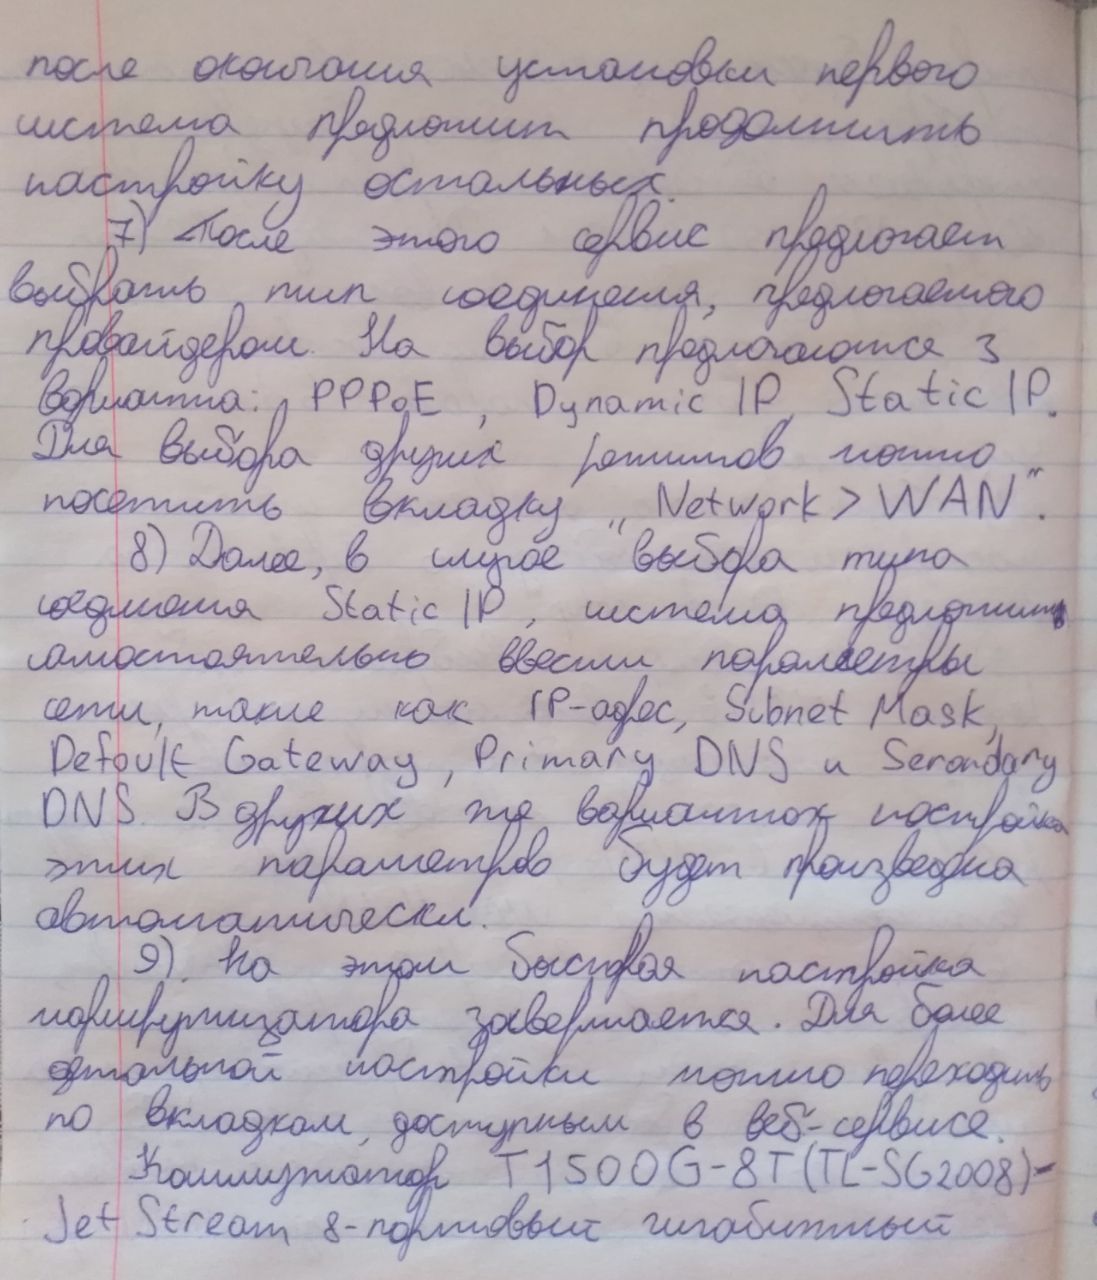 после окончания установки первого
система предложит продолжить
настройку остальных.
7) После этого сервис предлагает
выбрать тип соединения, предлагаемого
провайдером. На выбор предлагаются 3
варианта: PPPoE, Dynamic IP, Static IP.
Для выбора других режимов можно
посетить вкладку „Network > WAN".
8) Далее, в случае выбора типа
соединения Static IP, система предложит
самостоятельно ввести параметры
сети, такие как IP-адрес, Subnet Mask,
Default Gateway, Primary DNS и Secondary
DNS. В других же вариантах настройка
этих параметров будет произведена
автоматически.
9) На этом быстрая настройка
маршрутизатора завершается. Для более
детальной настройки можно переходить
по вкладкам, доступным в веб-сервисе.
Коммутатор T1500G-8T(TL-SG2008)-
Jet Stream 8-портовый гигабитный